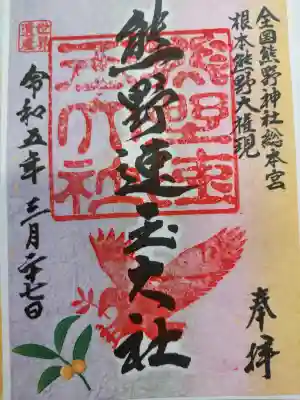 全国熊野神社総本宮
根本熊野大権現
奉拝
熊野速玉大社
世界遺産
令和五年三月二十七日